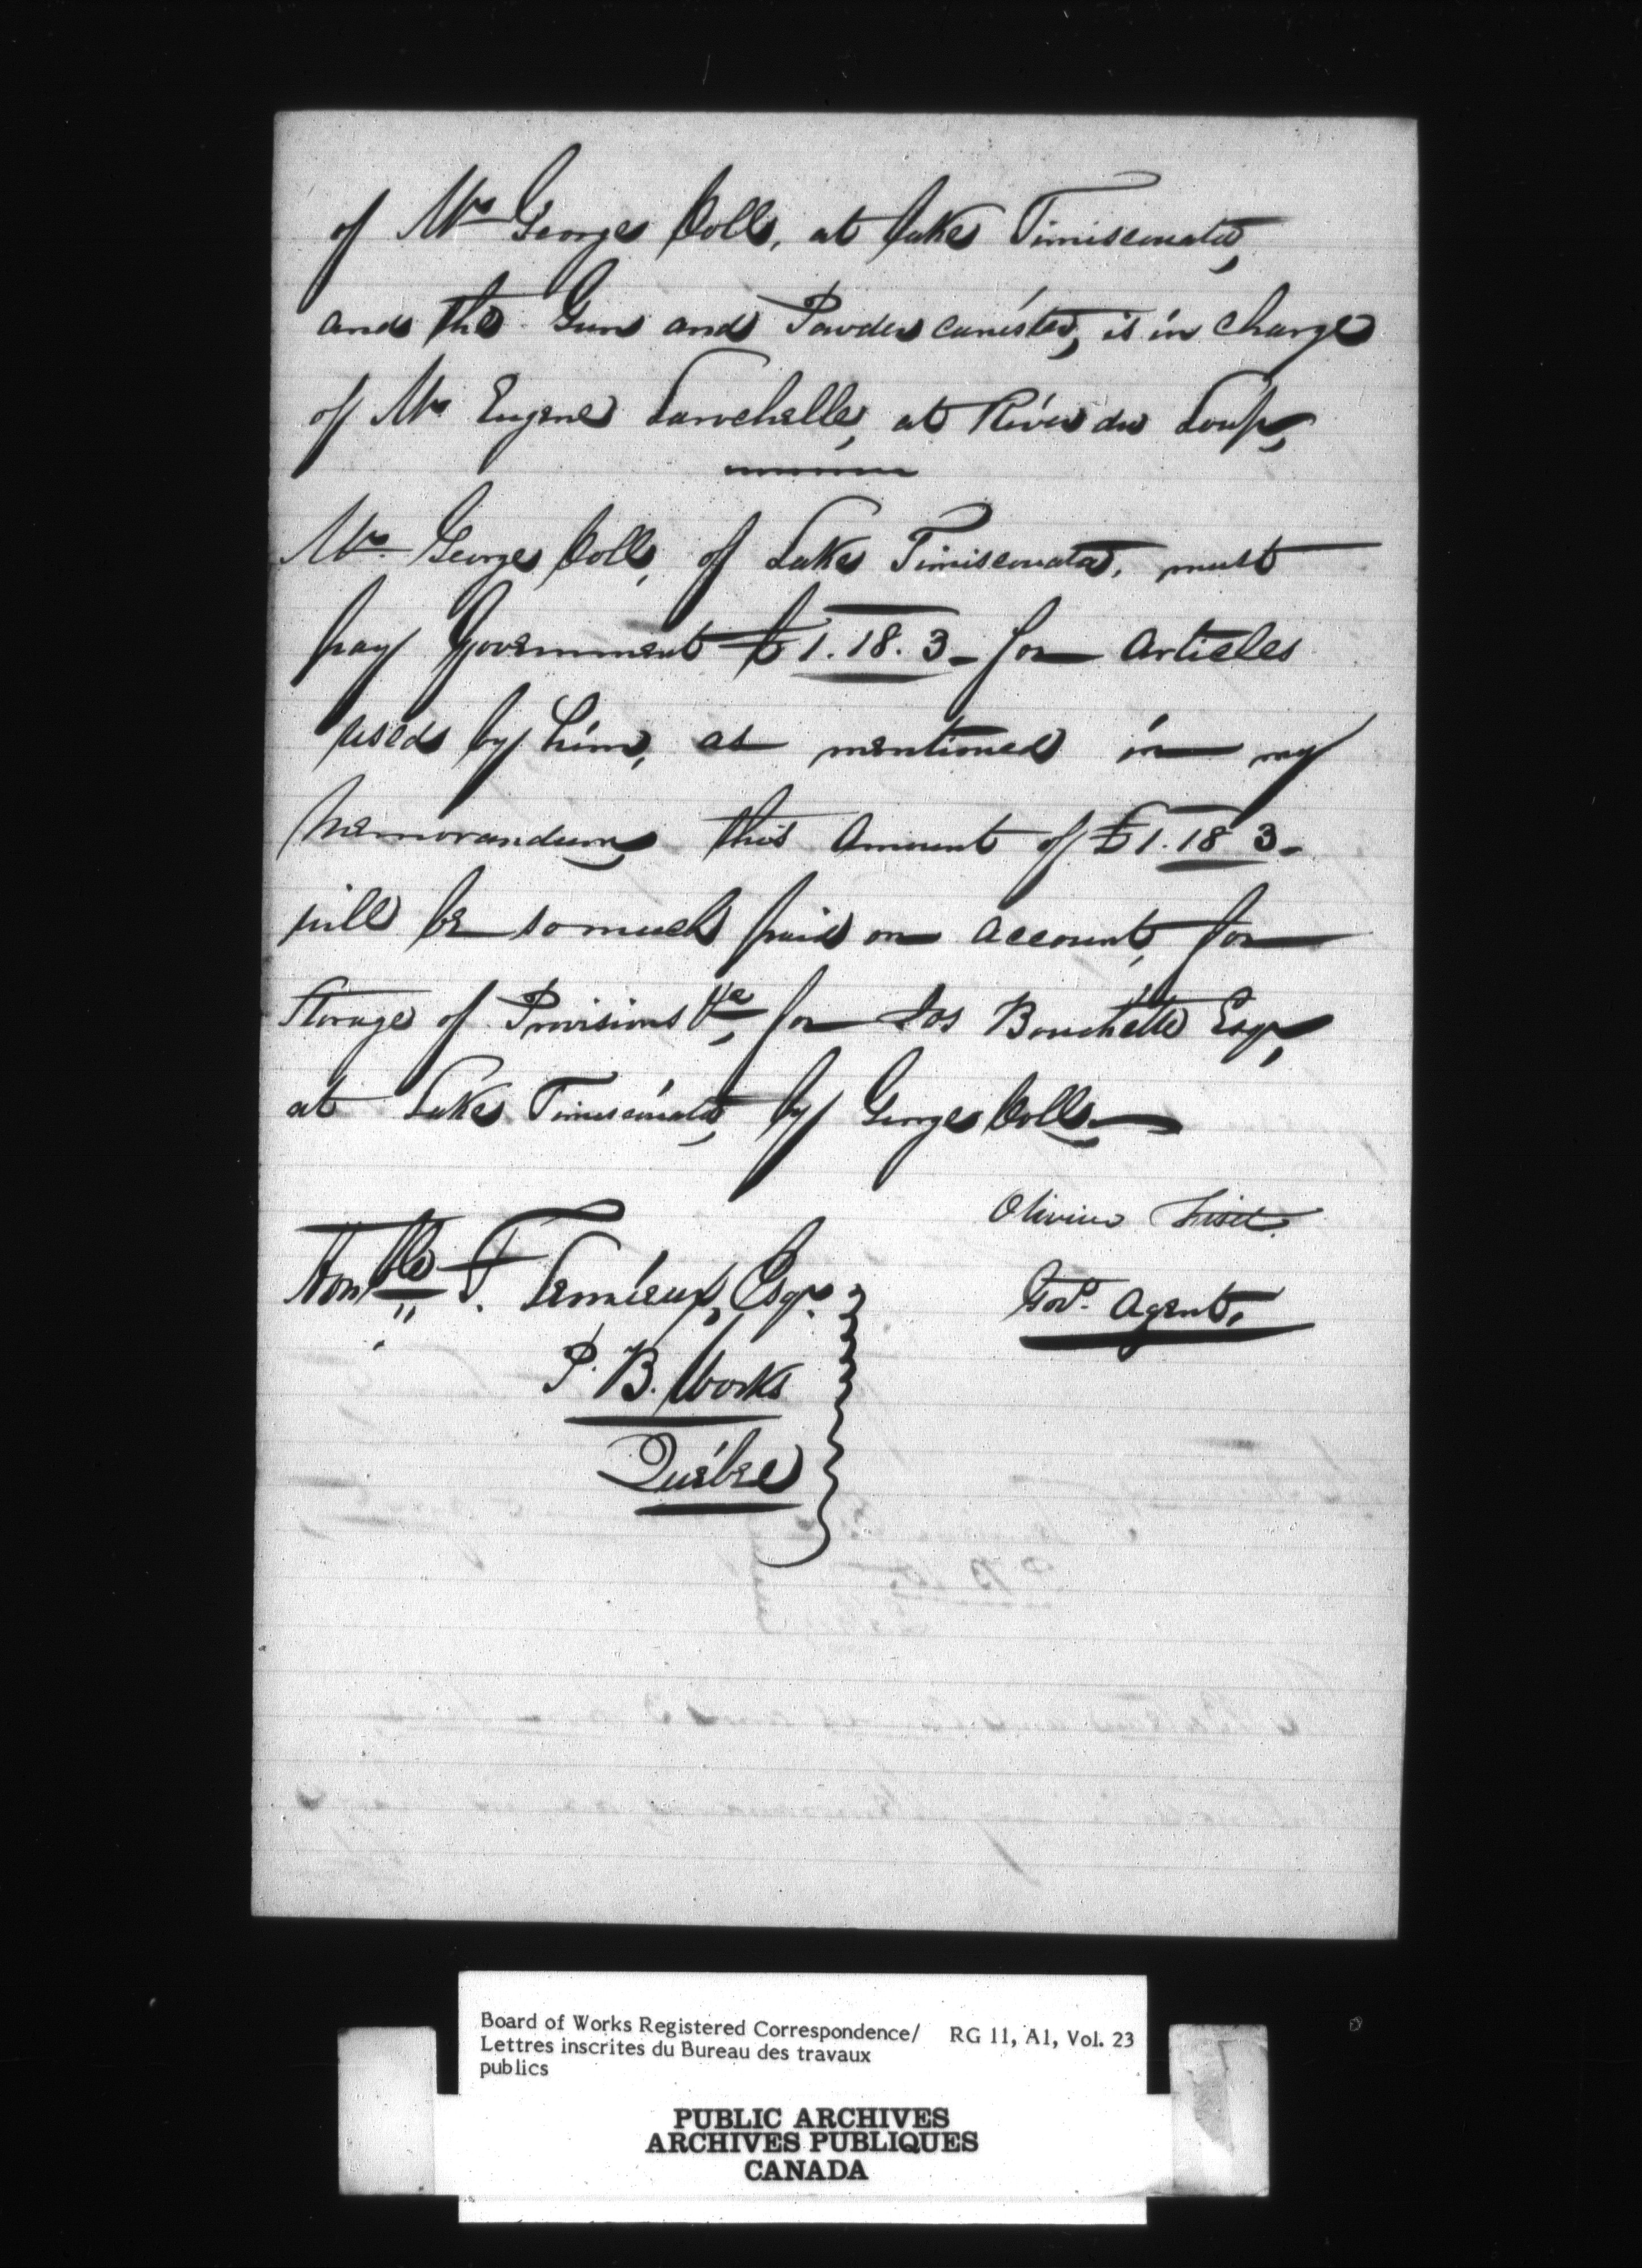 of Mr George Coll, at Lake Timiscouata,
and the Gun and Powder canister, is in charge
of Mr Eugene Larochelle, at River du Loup,
Mr George Coll, of Lake Timiscouata, must
pay Government £1.18.3 - for articles
used by him, as mentioned in my
Memorandum, this Amount of £1.18 3 -
will be so much paid on account, for
Storage of Provisions &c, for Jos Bouchette Esqr,
at Lake Timiscouata, by George Coll -
Olivier Fiset
Govt Agent,
Honble F. Lemieux, Esqr
P. B. Works
Québec
Board of Works Registered Correspondence/ RG 11, A1, Vol. 23
Lettres inscrites du Bureau des travaux
publics
PUBLIC ARCHIVES
ARCHIVES PUBLIQUES
CANADA